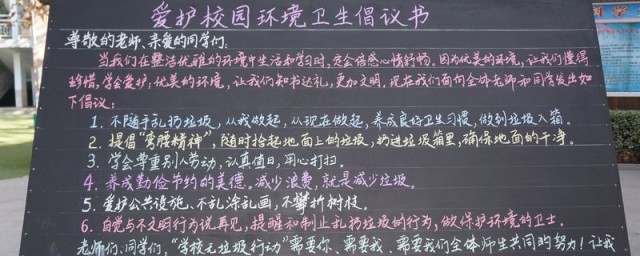 爱护校园环境卫生倡议书
尊敬的老师、亲爱的同学们:
当我们在整洁优雅的环境中生活和学习时,定会倍感心情舒畅。因为优美的环境,让我们懂得
珍惜,学会爱护;优美的环境,让我们知书达礼,更加文明。现在我们面向全体老师和同学发出如
下倡议:
1、不随手乱扔垃圾,从我做起,从现在做起,养成良好卫生习惯,做到垃圾入箱。
2、提倡“弯腰精神”,随时拾起地面上的垃圾,扔进垃圾箱里,确保地面的干净。
3、学会尊重别人劳动,认真值日,用心打扫。
4、养成勤俭节约的美德。减少浪费,就是减少垃圾。
5、爱护公共设施、不乱涂乱画,不攀折树枝。
6、自觉与不文明行为说再见,提醒和制止乱扔垃圾的行为,做保护环境的卫士。
老师们、同学们,“学校无垃圾行动”需要你、需要我、需要我们全体师生共同的努力!让我